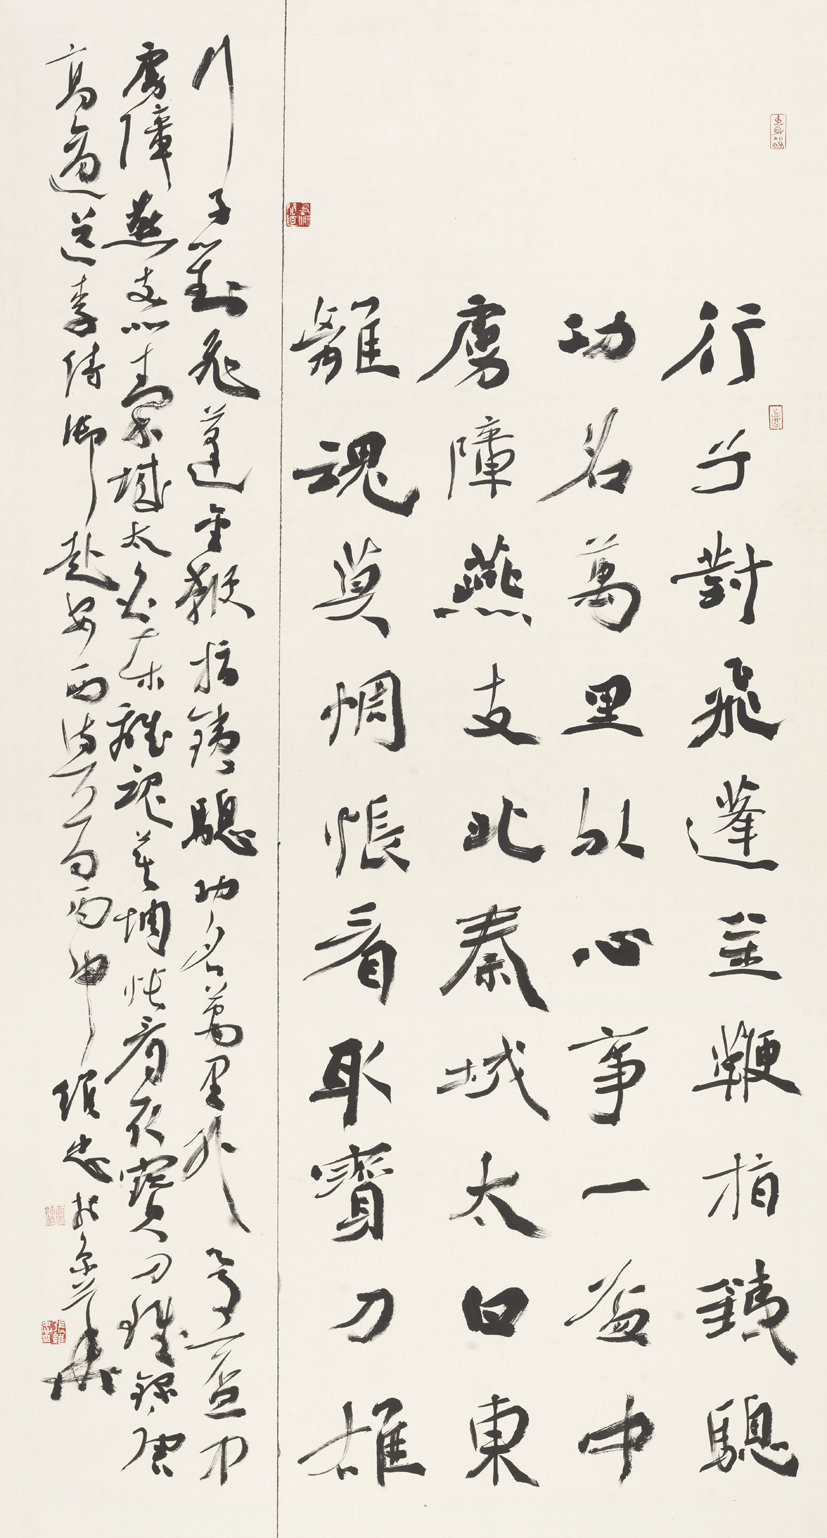 行子對飛蓬金鞭指鐵驄
功名萬里外心事一盃中
虜障燕支北秦城太白東
離魂莫惆悵看取寶刀雄
行子對飛蓬金鞭指鐵驄功名萬里外心事一盃中
虜障燕支北秦城太白東離魂莫惆悵看取寶刀雄錄唐
高適送李侍御赴安西詩一首丙申維忠於京華